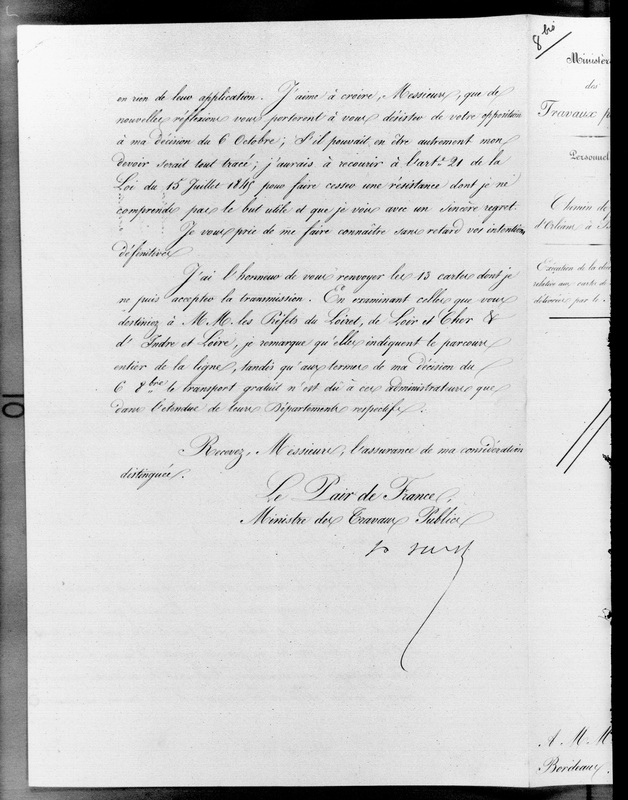 en rien de leur application. J'aime à croire, Messieurs, que de
nouvelles réflexions vous porteront à vous désister de votre opposition
à ma décision du 6 Octobre; S'il pouvait en être autrement mon
devoir serait tout tracé; j'aurais à recourir à l'art. 21 de la
Loi du 15 Juillet 1845 pour faire cesser une résistance dont je ne
comprends pas le but utile et que je vois avec un sincère regret.
Je vous prie de me faire connaître sans retard vos intentions
définitives
J'ai l'honneur de vous renvoyer les 13 cartes dont je
ne puis accepter la transmission. En examinant celles que vous
destiniez à M.M. les Préfets du Loiret, de Loir et Cher &
d'Indre et Loire, je remarque qu'elles indiquent le parcours
entier de la ligne, tandis qu'aux termes de ma décision du
6 8bre le transport gratuit n'est dû à ces administrateurs que
dans l'étendue de leurs Départements respectifs.
Recevez, Messieurs, l'assurance de ma considération
distinguée.
Le Pair de France,
Ministre des Travaux Publics
8 bis
Ministère
des
Travaux p
Personnel
Chemin de
d'Orléans à
Exécution de la
relative aux cartes de
délivrées par le
A M.M
Bordeaux.
10